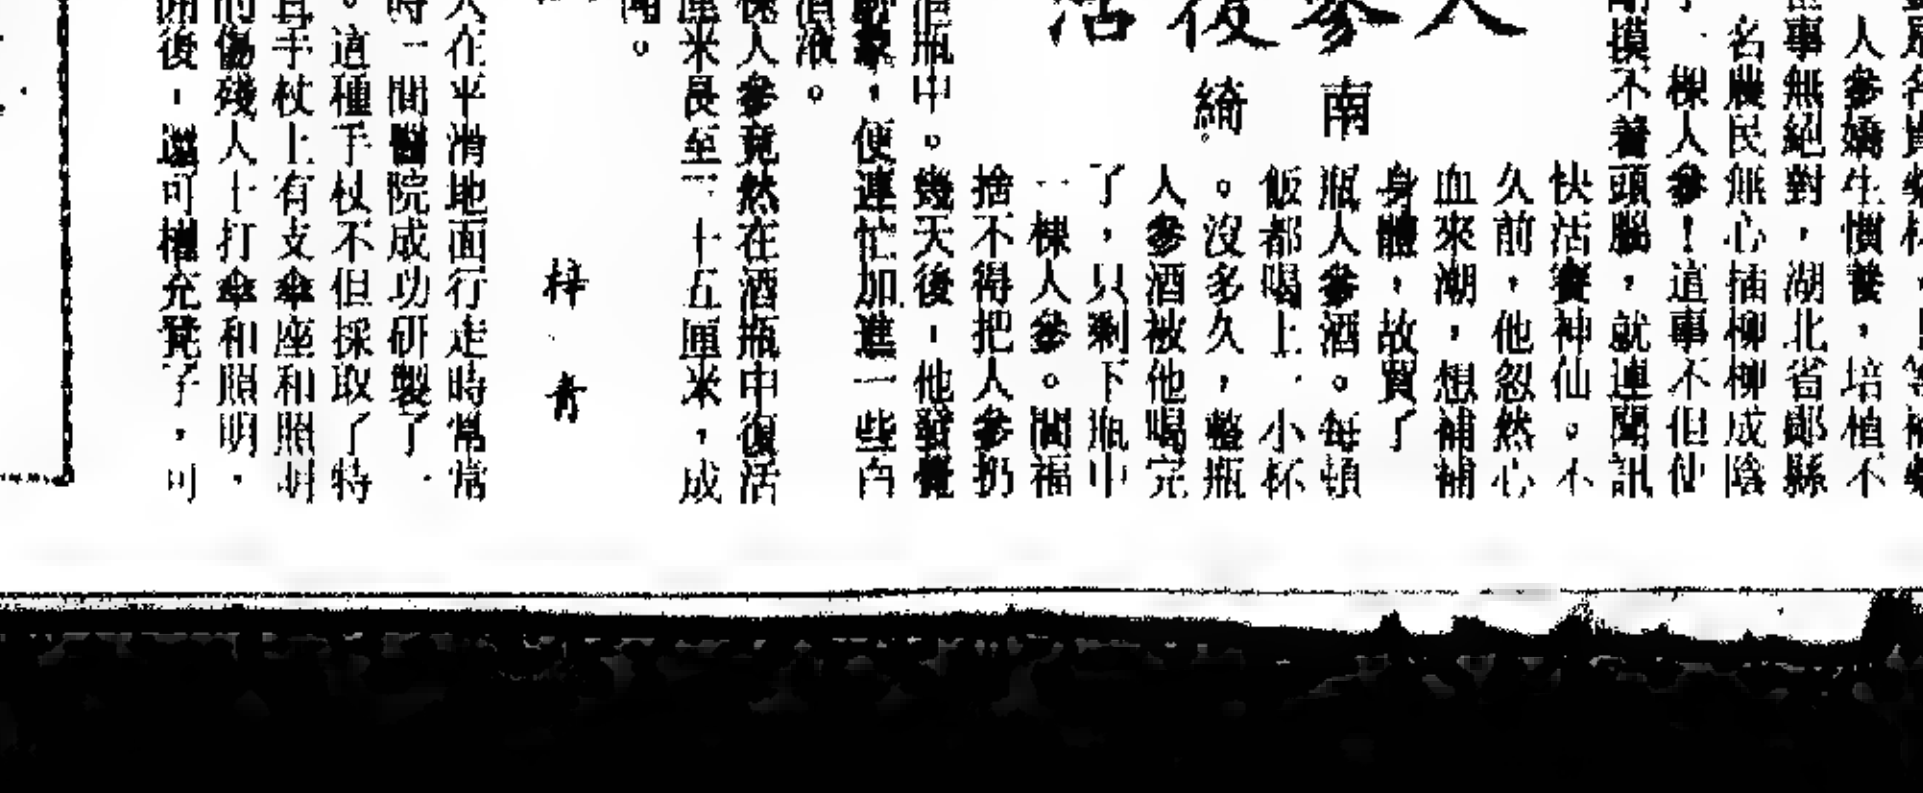 人參復活
南綺
人參嬌生慣養，培植不
事無絕對，湖北省鄖縣
名農民無心插柳柳成陰
一棵人參！這事不但使
摸不着頭腦，就連聞訊
快活賽神仙。不
久前，他忽然心
血來潮，想補補
身體，故買了
瓶人參酒。每頓
飯都喝上一小杯
。沒多久，整瓶
人參酒被他喝完
了，只剩下瓶中
一棵人參。閻福
捨不得把人參扔
酒瓶中。幾天後，他發覺
，便連忙加進一些白
酒液。
棵人參竟然在酒瓶中復活
厘米長至二十五厘米，成
聞。
梓青
人在平滑地面行走時常常
時一間醫院成功研製了一
。這種手杖不但採取了特
其手杖上有支傘座和照明
的傷殘人士打傘和照明，
後，還可權充凳子，可